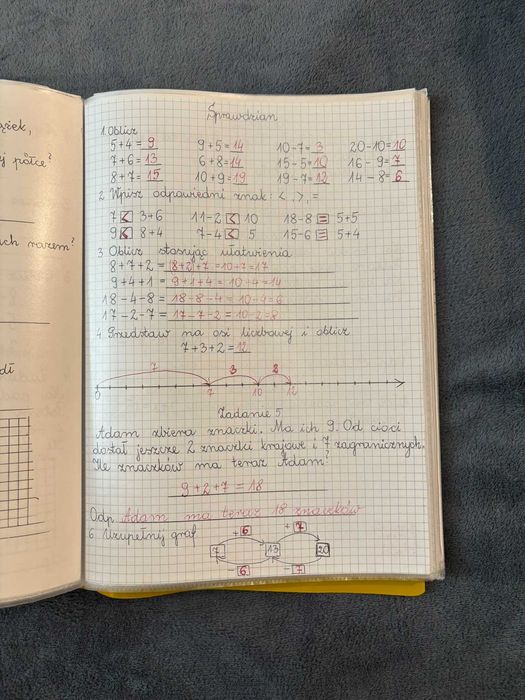 ążek,
j półce?
ach razem?
dł
Sprawdzian
1. Oblicz
5+4=9 9+5=14 10-7=3 20-10=10
7+6=13 6+8=14 15-5=10 16-9=7
8+7=15 10+9=19 19-7=12 14-8=6
2. Wpisz odpowiedni znak: <, >, =
7 < 3+6 11-2 < 10 18-8 = 5+5
9 < 8+4 7-4 < 5 15-6 = 5+4
3. Oblicz stosując ułatwienia
8+7+2=(8+2)+7=10+7=17
9+4+1=9+1+4=10+4=14
18-4-8=18-8-4=10-4=6
17-2-7=17-7-2=10-2=8
4. Przedstaw na osi liczbowej i oblicz
7+3+2=12
7 3 2
0 7 10 12
Zadanie 5
Adam zbiera znaczki. Ma ich 9. Od cioci
dostał jeszcze 2 znaczki krajowe i 7 zagranicznych.
Ile znaczków ma teraz Adam?
9+2+7=18
Odp. Adam ma teraz 18 znaczków
6. Uzupełnij graf
+6 +7
7 13 20
-6 -7